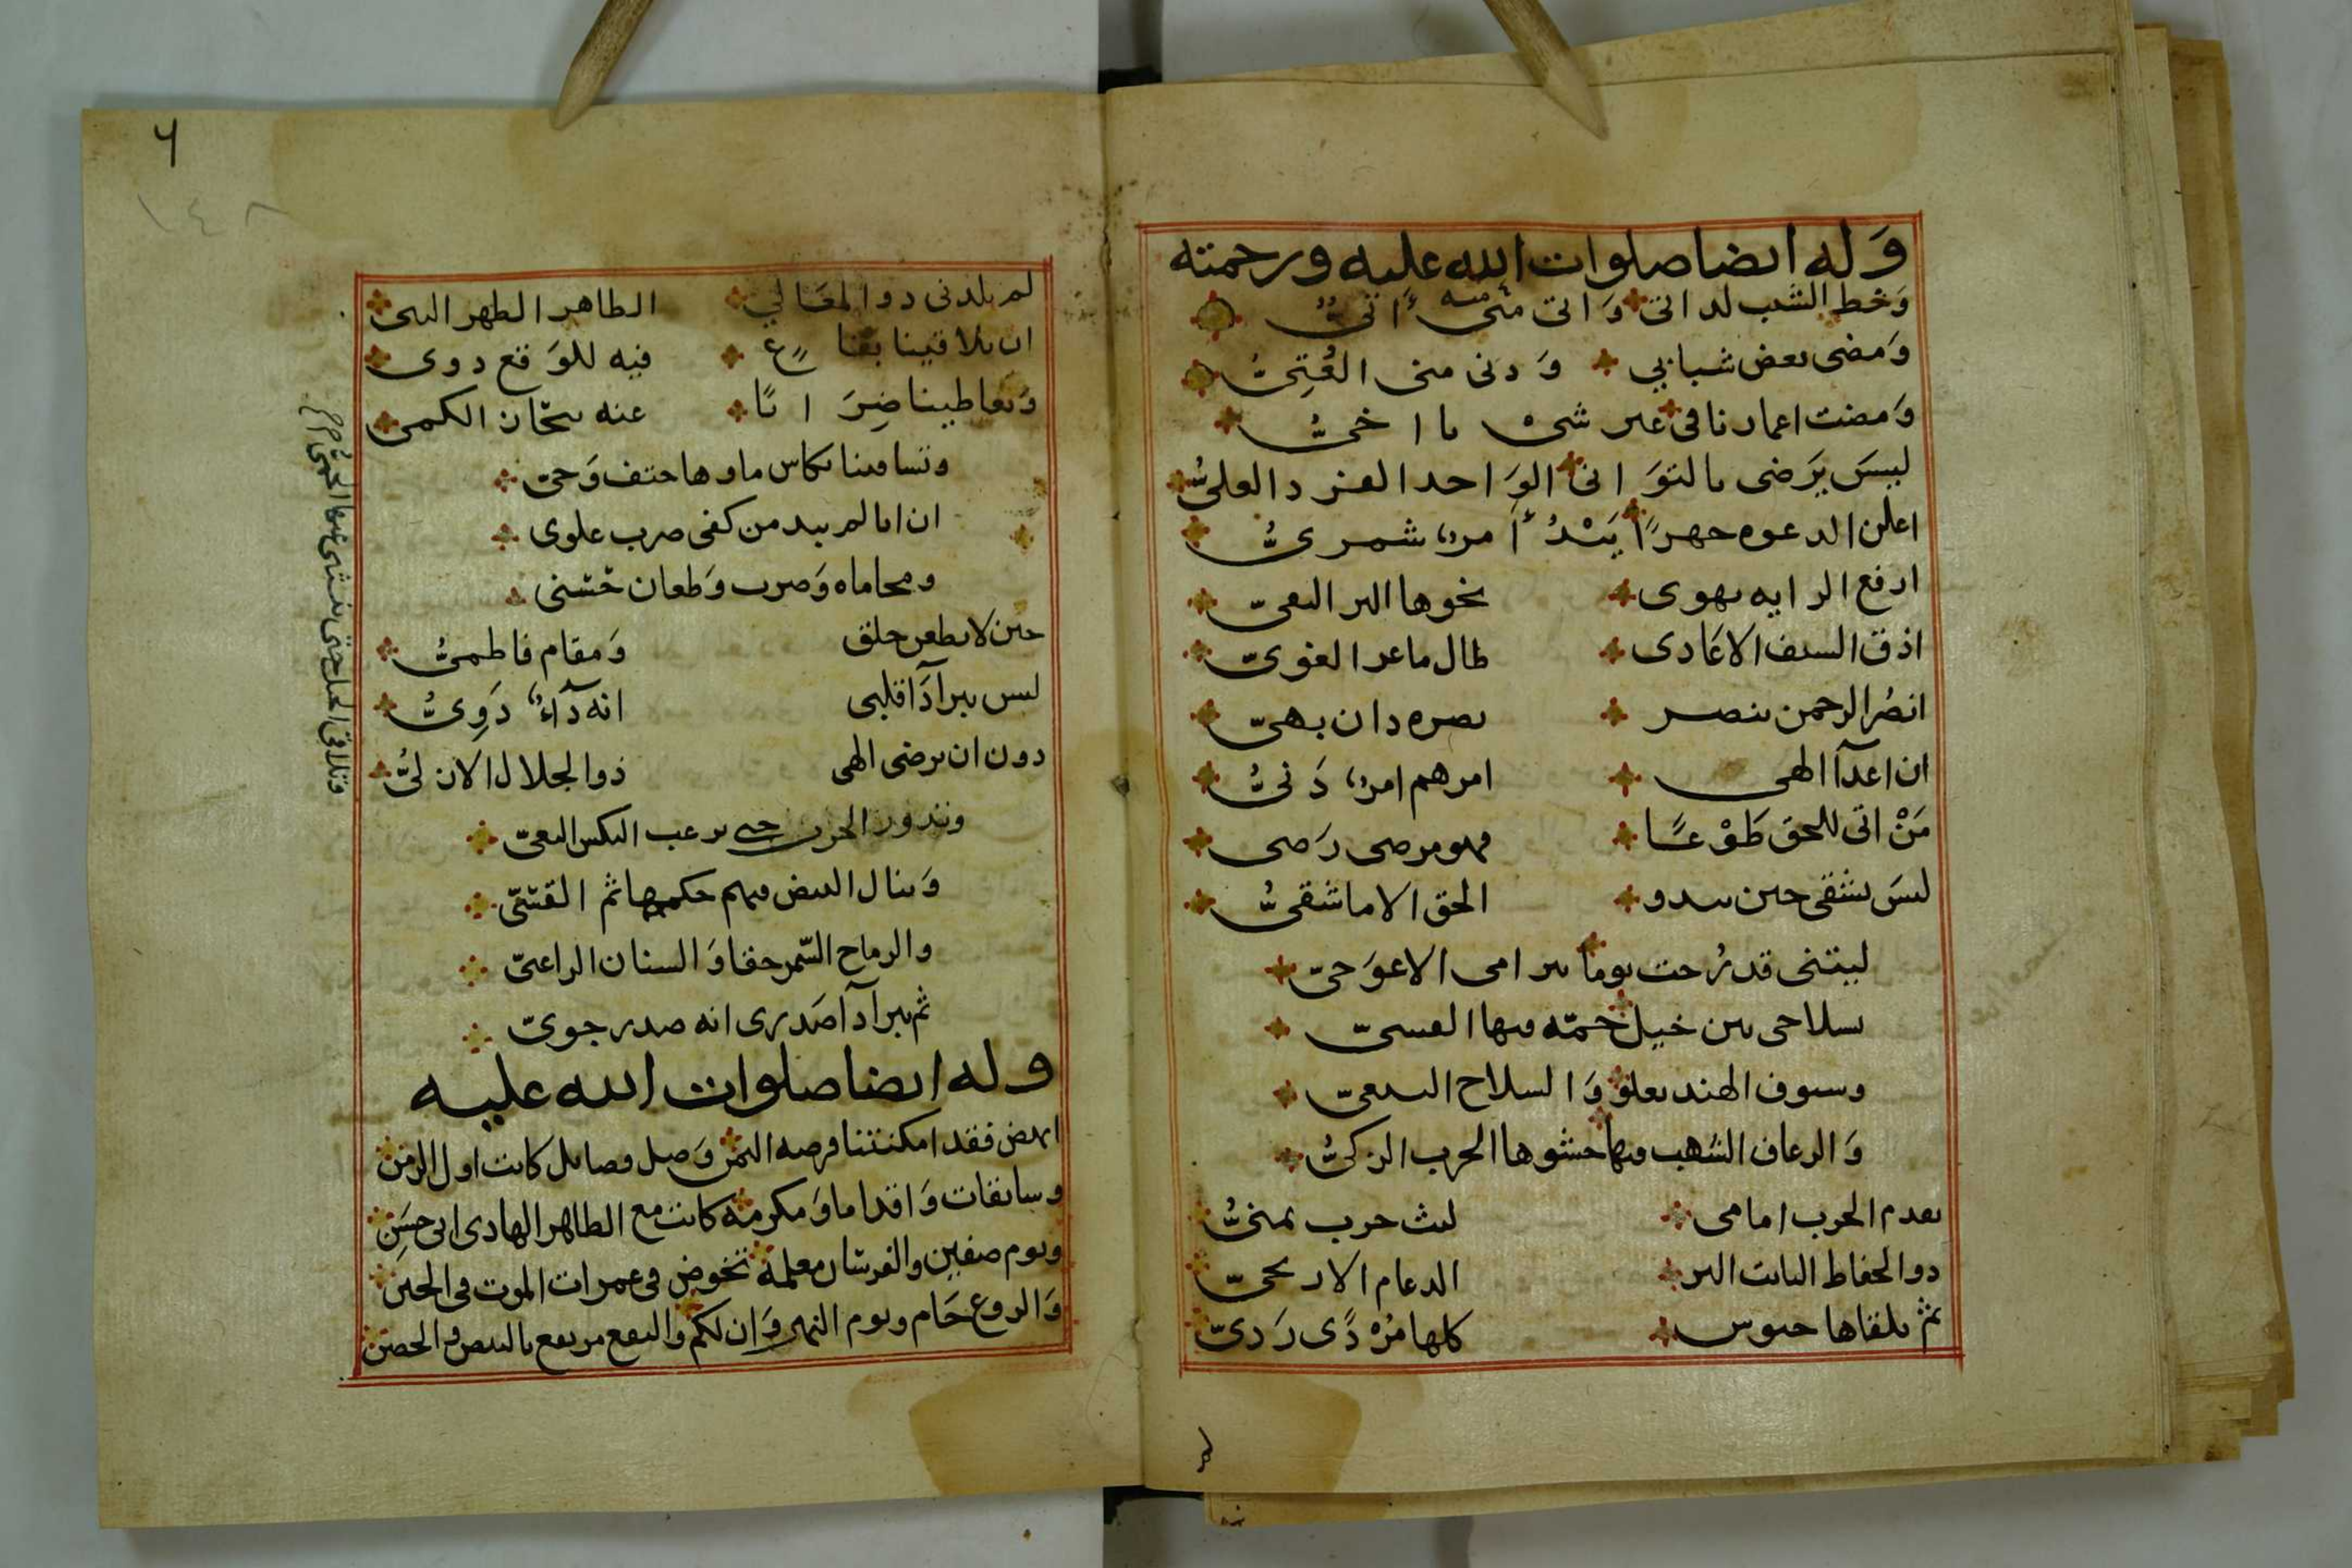 وله ايضا صلوات الله عليه ورحمته
وخط الشيب لداتى واتى منى منه اتىُّ
ومضى بعض شبابي ودنى منى العُتِىُّ
ومضت اعمارنا فى غير شىْ يا اخىُّ
ليسَ يَرضى بالتوَانى الوَاحد الفرد العلىُّ
اعلن الدعوه جهرًا يَبْدُ أمرٌ شمرىُّ
ارفع الرايه يهوى نحوها البر التقىّ
اذق السيف الاعادى طال ما عز الغوىّ
انصُر الرحمن ينصر نصره دان بهىّ
ان اعدآ الهى امرهم امرٌ دَنىُّ
مَنْ اتى للحق طَوْعًا فهو مرضى رَضى
ليسَ يشقى حين يبدو الحق الا ما شقىُّ
ليتنى قد رُحت يوما بى امامى الاعوَجىّ
بسلاحى بين خيل جمّه فيها القسىّ
وسيوف الهند تعلو وَالسلاح التبعىّ
وَالرعاف الشهب فيها حشوها الحرب الزكىُّ
يقدم الحرب امامى ليث حرب يمنىُّ
ذو الحفاظ الثابت البر الدعام الاريحىّ
ثم يلقاها جيوس كلها مُرْدًى رَدىّ
لم
٦
١٤٨
لم يلدنى ذوا المعَالي الطاهر الطهر النبى
ان يلاقينا بقاعٍ فيه للوَقع دوى
وَيعاطينا ضِرَابًا عنه يتحان الكمى
وتساقينا بكاس ماوها حتف وَحىّ
ان انا لم يبد من كفى ضرب علوى
ومحاماه وَضرب وَطعان خشنى
حين لا يطعن خلق وَمقام فاطمىُّ
ليس يبرا دَآ قلبى انه دَآءٌ دَوِىُّ
دون ان يرضى الهى ذو الجلال الازلىُّ
وتدور الحرب حتى يرعب النكس البغىّ
وَينال البيض فيهم حكمها ثم القنىّ
والرماح السّمر حقا وَالسنان الزاعبىّ
ثم يبرا دآ صَدرى انه صدر جوىّ
فتلاقى الخيل حتى ينثنى عنها الحمى
وله ايضا صلوات الله عليه
انهض فقد امكنتنا فرصه اليمن وَصل فضائل كانت اول الزمن
وسابقات وَاقداما وَمكرمة كانت مع الطاهر الهادى ابى حسَنِ
ويوم صفين والفرسان معلمة تخوض فى غمرات الموت فى الجنن
وَالروع حَام ويوم النهروَان لكم والنقع مرتفع بالبيض والحصن